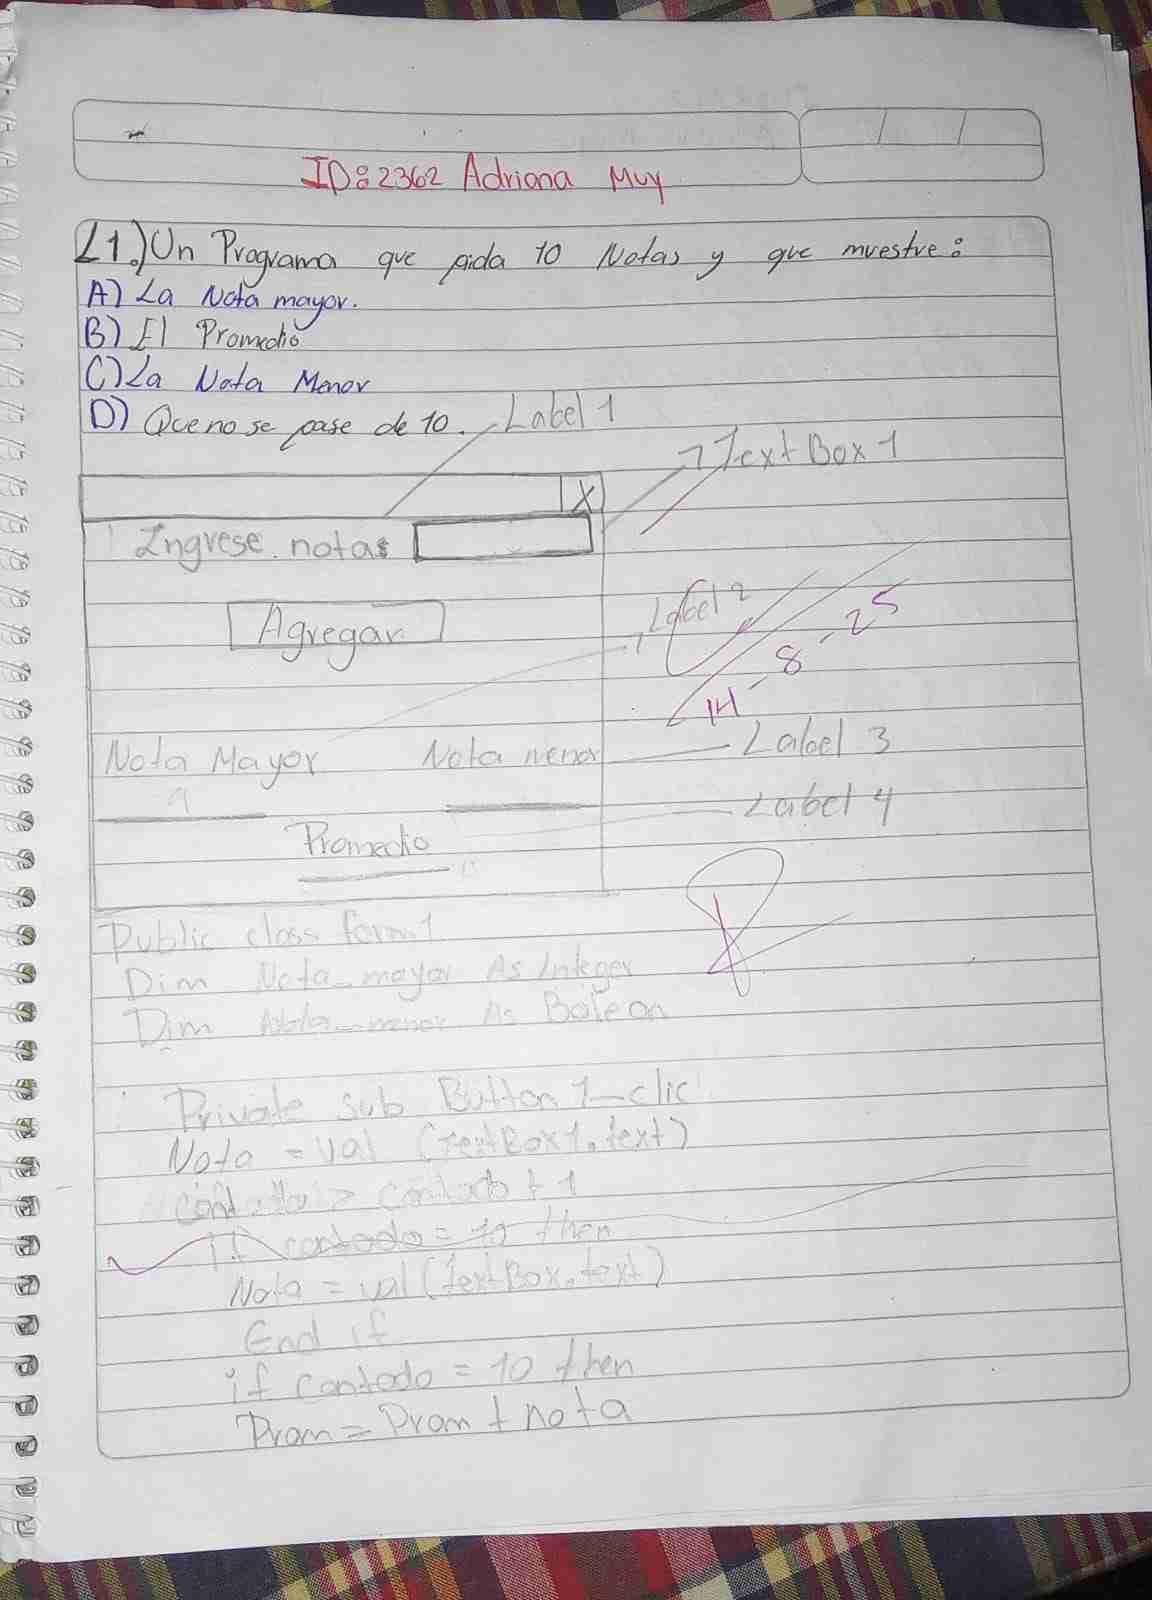 ID:2362 Adriana Muy
L1.) Un Programa que pida 10 Notas y que muestre:
A) La Nota mayor.
B) El Promedio
C) La Nota Menor
D) Que no se pase de 10.
Label 1
TextBox 1
X
Ingrese notas
Agregar
Label 2
14-8-25
Nota Mayor
Nota menor
Label 3
Label 4
Promedio
Public class form1
Dim Nota_mayor As Integer
Dim Nota_menor As Bolean
Private sub Button 1_clic
Nota = val (TextBox1.text)
contado + 1
if contado = 10 then
Nota = val(TextBox.text)
End if
if contado = 10 then
Prom = Prom + nota